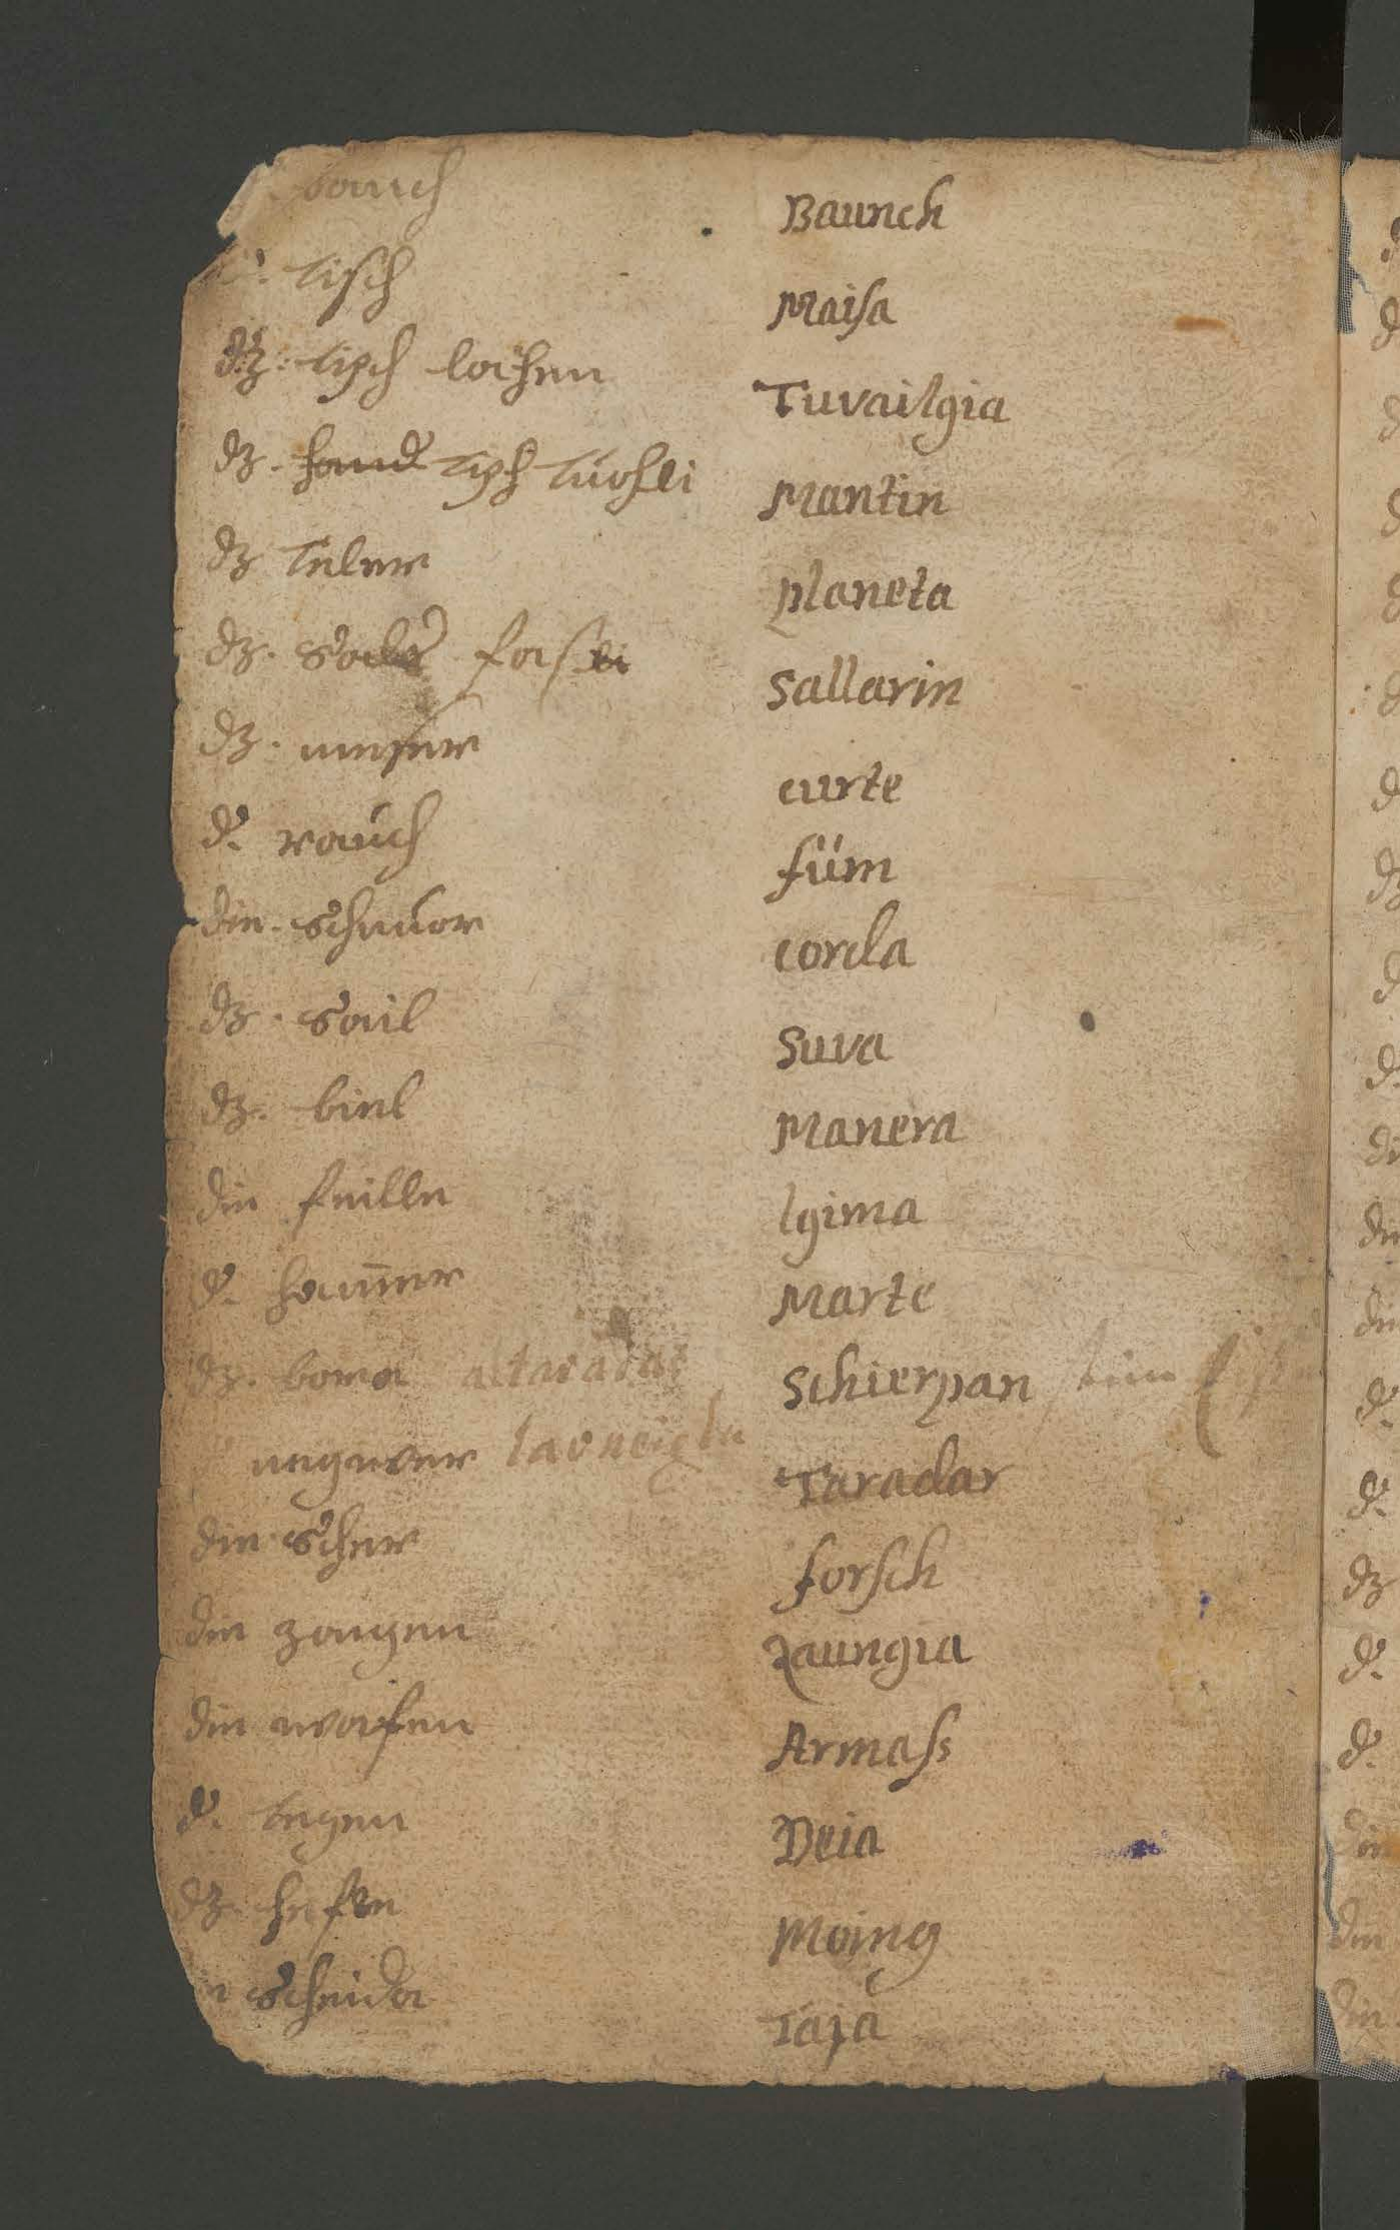 banch Baunch
d. tisch Maisa
dz. tisch lachen Tuvailgia
dz. hand tisch tüohli Mantin
dz teler planeta
dz. Saltz faßli Sallarin
dz. messer curte
d. rauch füm
die. Schnuor corda
dz. Sail Suva
dz. biel Manera
die feille lgima
d. hammer Marte
dz. bora altaradar Schierpan
negwer Taradar
die Scher forsch
die zangen zaungia
die waafen Armass
d. tegen Deia
dz. hefte Moing
Scheida Taja